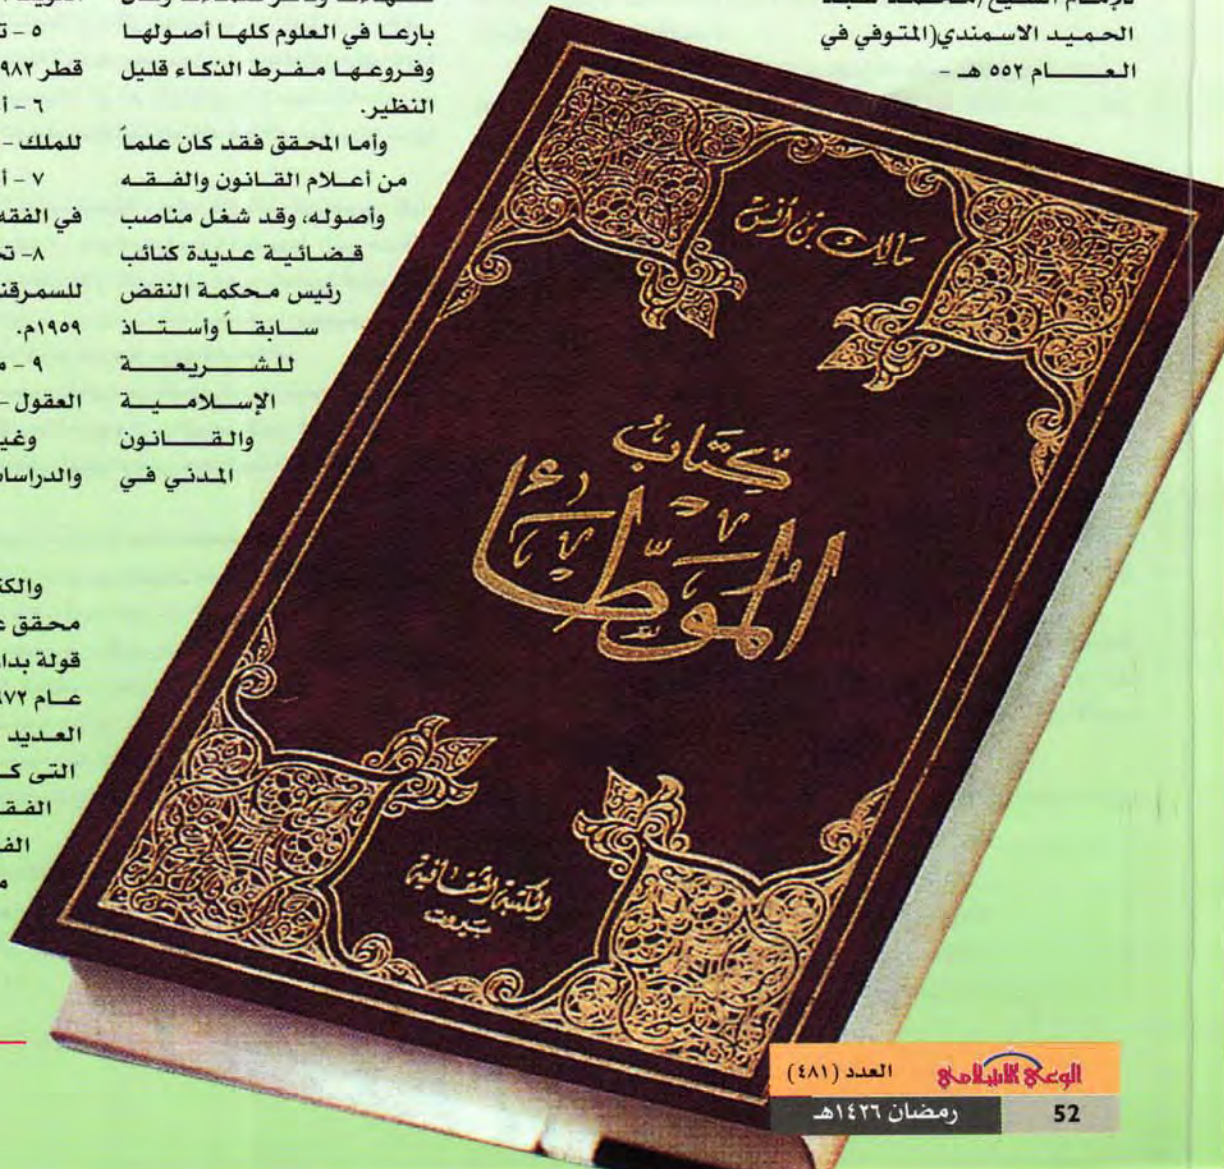 الحميد الاسمندي(المتوفي في
العام ٥٥٢ هـ -
بارعا في العلوم كلها أصولها
وفروعها مفرط الذكاء قليل
النظير.
وأما المحقق فقد كان علماً
من أعلام القانون والفقه
وأصوله، وقد شغل مناصب
قضائية عديدة كنائب
رئيس محكمة النقض
سابقاً وأستاذ
للشريعة
الإسلامية
والقانون
المدني في
٥ -
قطر
٦ -
للملك -
٧ -
في الفقه
٨ -
للسمرقند
١٩٥٩م.
٩ -
العقول -
والدراسات
محقق
عام
العديد
مالك بن أنس
كتاب
الموطأ
المكتبة الثقافية
بيروت
الوعي الإسلامي
العدد (٤٨١)
رمضان ١٤٢٦هـ
52